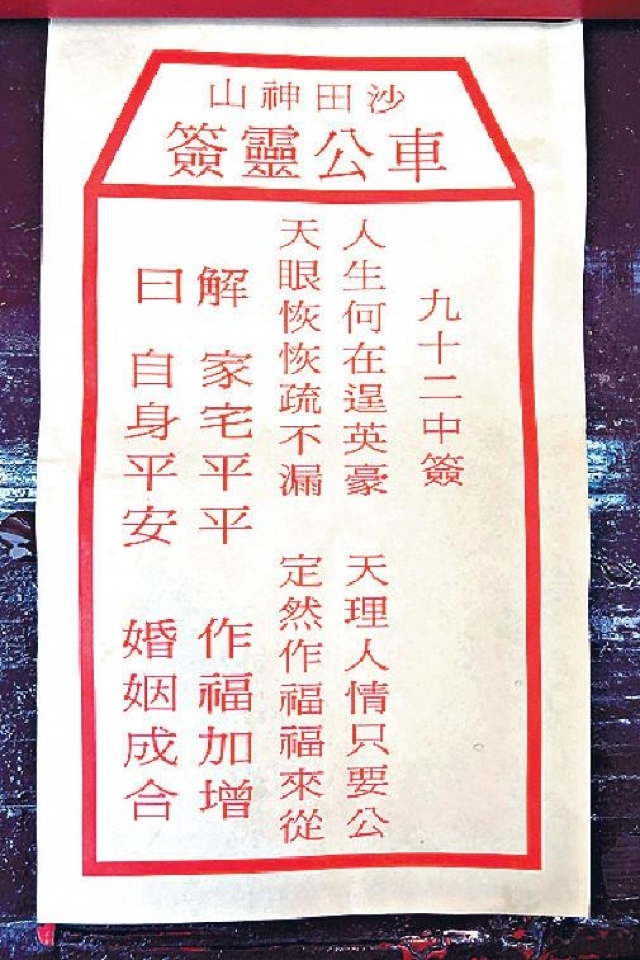 沙田神山
車公靈簽
九十二中簽
人生何在逞英豪　天理人情只要公
天眼恢恢疏不漏　定然作福福來從
解　家宅平平　作福加增
曰　自身平安　婚姻成合